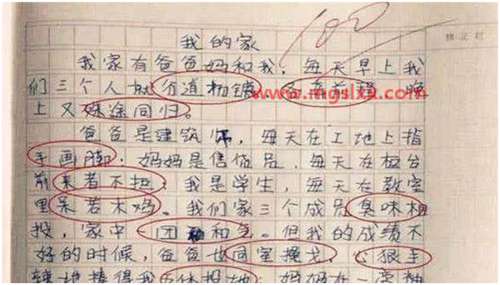 我的家
100
我家有爸爸妈和我，每天早上我
们三个人就分道扬镳，各奔前程，晚
上又殊途同归。
爸爸是建筑师，每天在工地上指
手画脚；妈妈是售货员，每天在柜台
前来者不拒；我是学生，每天在教室
里呆若木鸡。我们家三个成员臭味相
投，家中一团和气。但我的成绩不
好的时候，爸爸也同室操戈，心狠手
辣地揍得我五体投地，妈妈在一旁袖
www.mgslxa.com